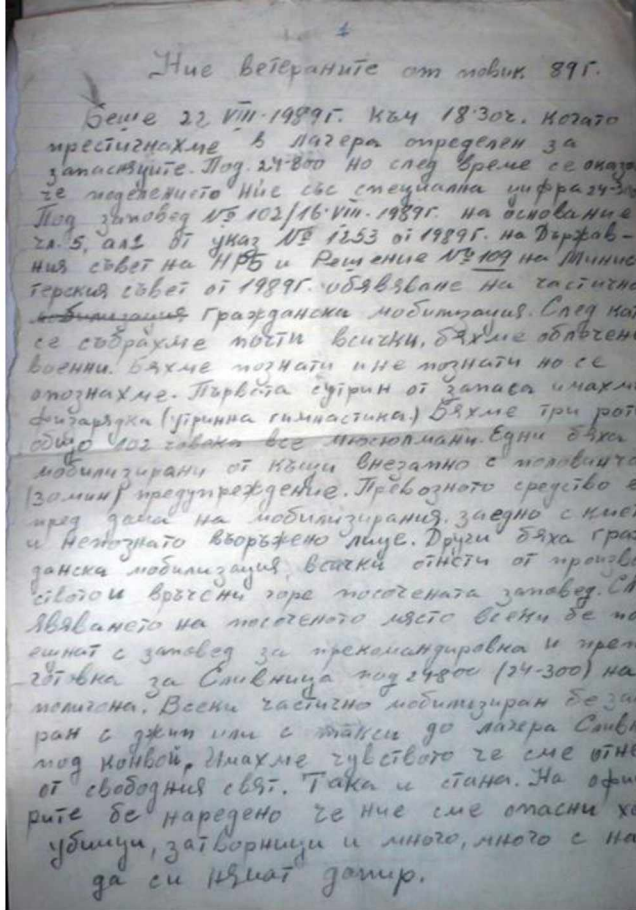 1
Ние ветераните от повик 89г.
Беше 22 VIII-1989г. към 18.30ч. когато
престигнахме в лагера определен за
запасняците. Под. 24-800 но след време се оказа
че поделението ние със специална цифра 24-300
Под заповед № 102/16.VIII-1989г. на основание
чл. 5, ал1 от указ № 1253 от 1989г. на Държав-
ния съвет на НРБ и Решение № 109 на Минис
терския съвет от 1989г. обявяване на частична
мобилизация гражданска мобилизация. След кат
се събрахме почти всички, бяхме облечен
военни. Бяхме познати и не познати но се
опознахме. Първата сутрин от запаса имахм
физарядка (утринна гимнастика) Бяхме три рот
общо 102 човека все мюсюлмани. Едни бяха
мобилизирани от къщи внезапно с половинча
(30мин) предупреждение. Превозното средство е
пред дома на мобилизирания. заедно с кмет
и непознато въоръжено лице. Други бяха граж
данска мобилизация, всички отнети от произво
ството и връчени горе посочената заповед. Сл
явяването на посоченото място всеки бе по
ешнат с заповед за прекомандировка и преп
готовка за Сливница под 24800 (24-300) на
полигона. Всеки частично мобилизиран бе за
ран с джип или с такси до лагера Сливн
под конвой. Имахме чувството че сме отне
от свободния свят. Така и стана. На офиц
рите бе наредено че ние сме опасни хо
убийци, затворници и много, много с на
да си нямат допир.